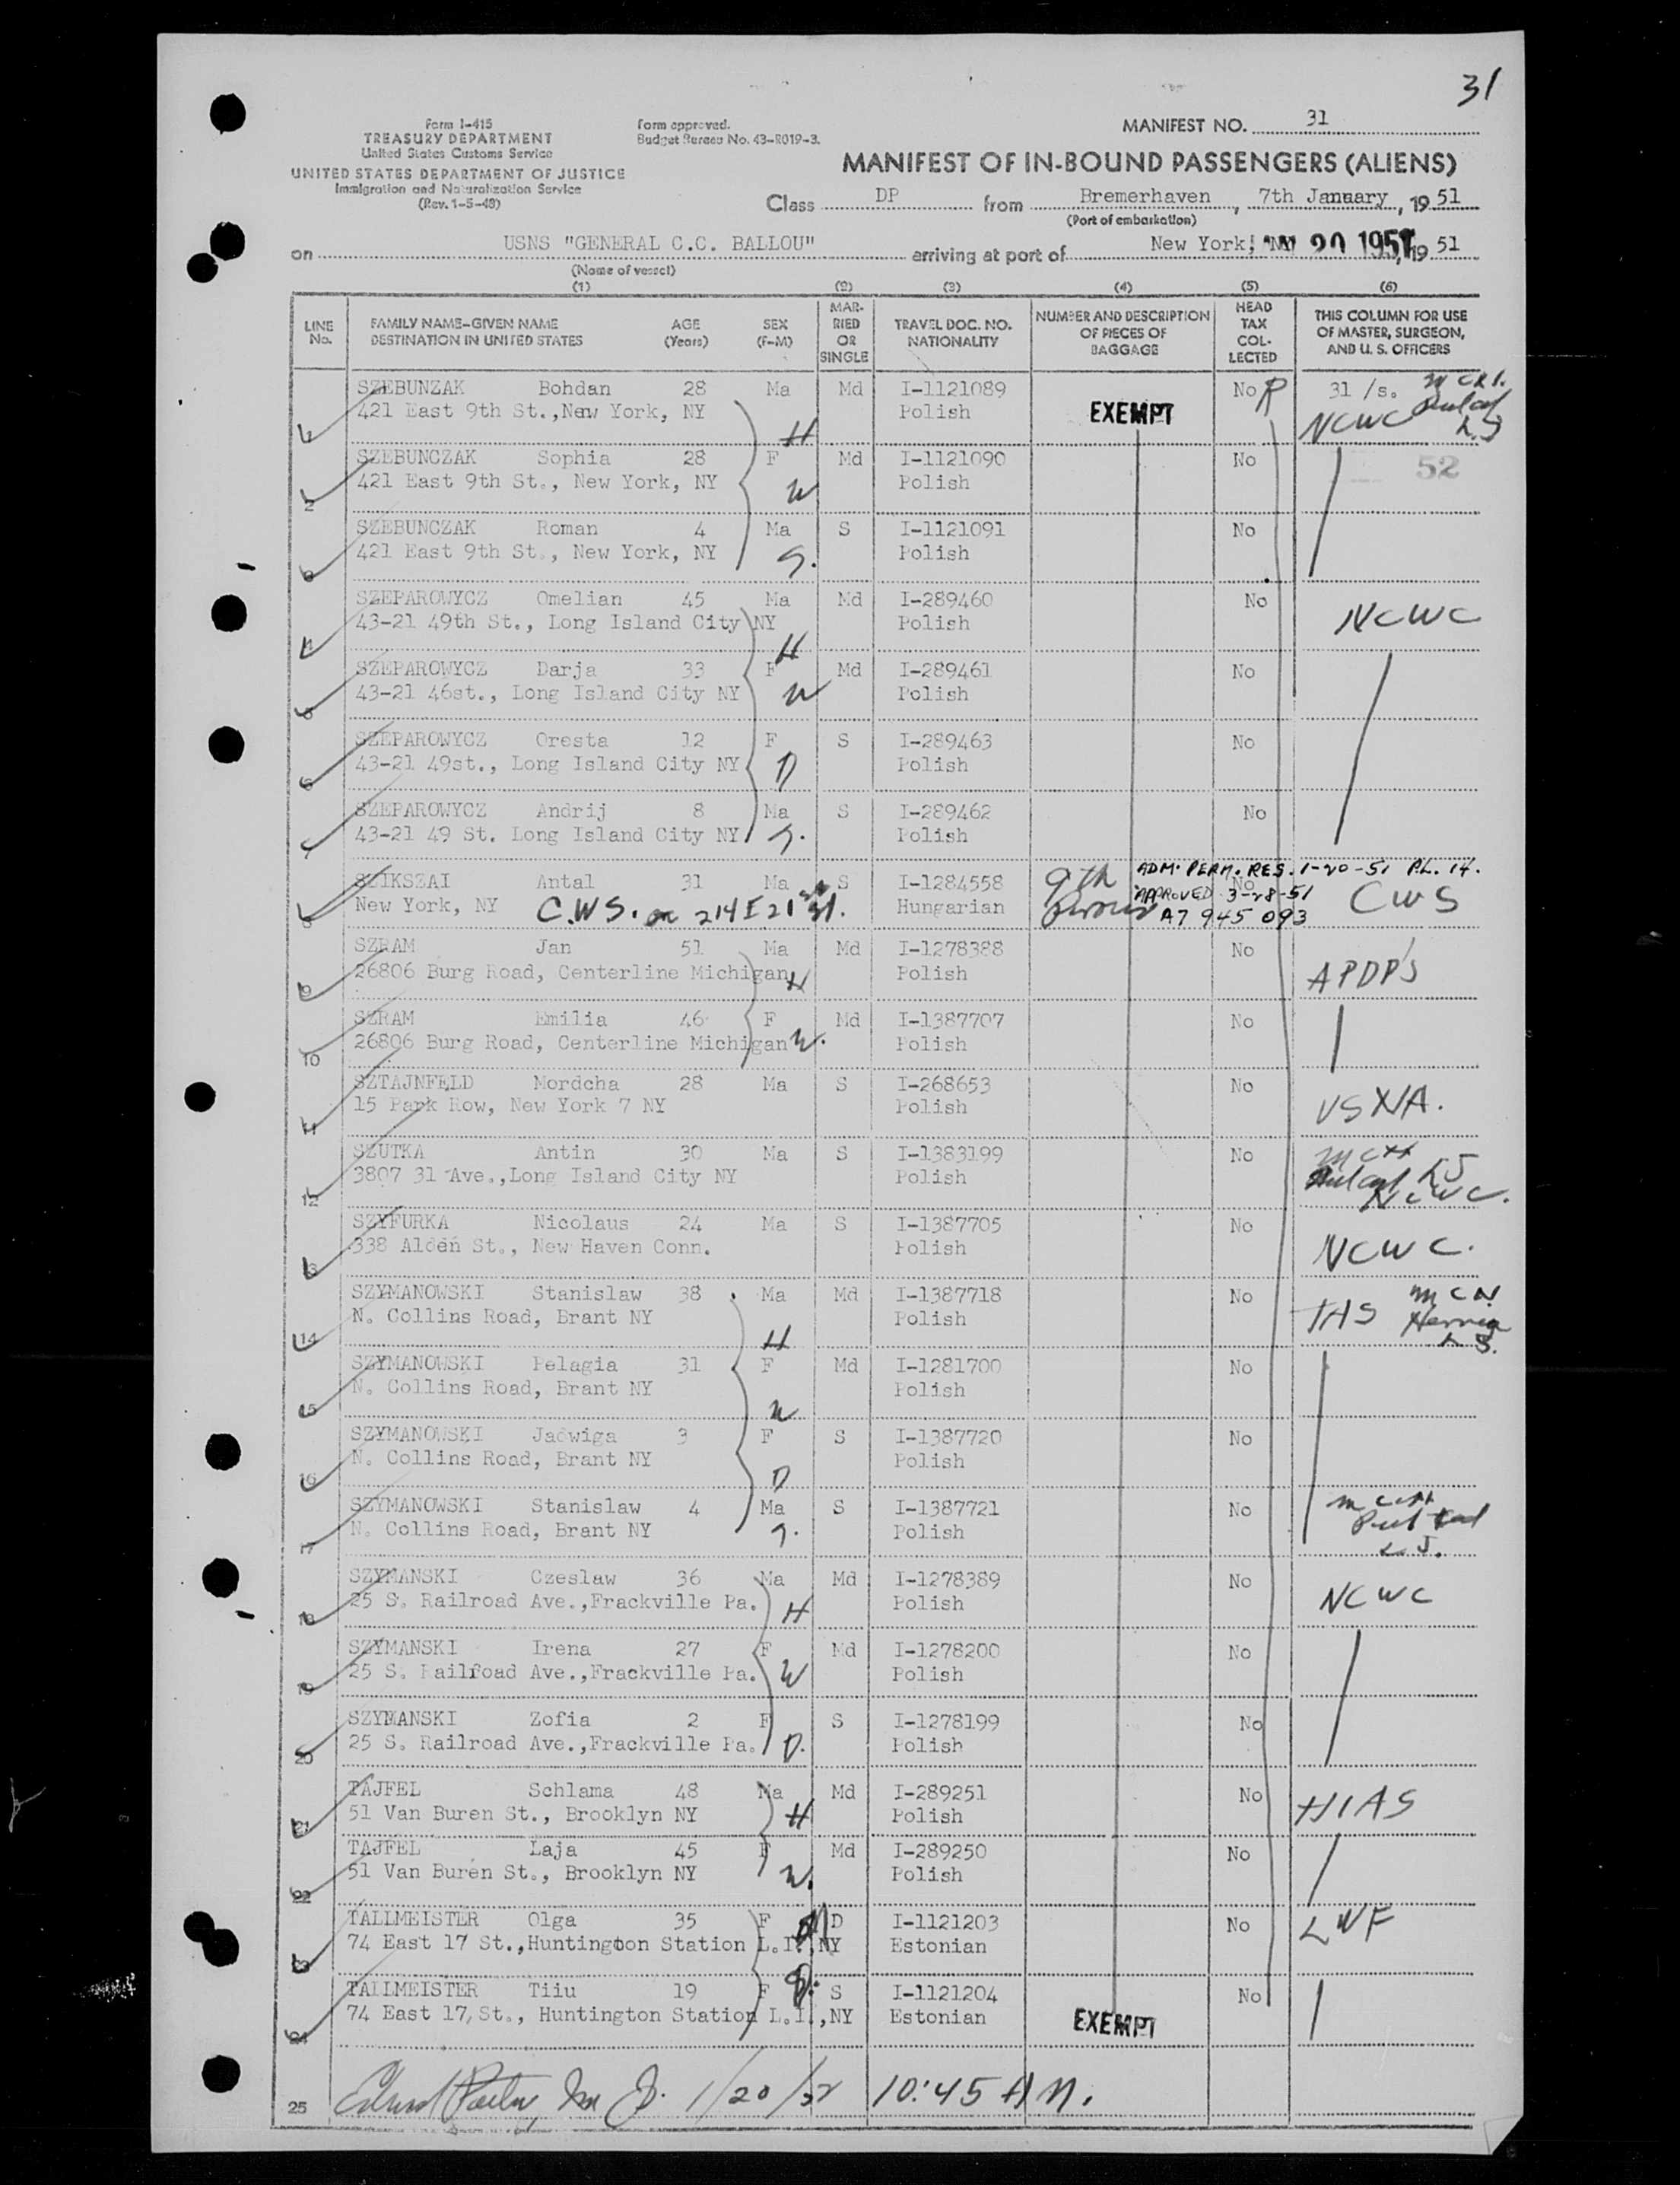 31
Form I-415
TREASURY DEPARTMENT
United States Customs Service
UNITED STATES DEPARTMENT OF JUSTICE
Immigration and Naturalization Service
(Rev. 1-5-49)
Form approved.
Budget Bureau No. 43-R019-3.
MANIFEST NO. 31
MANIFEST OF IN-BOUND PASSENGERS (ALIENS)
Class DP from Bremerhaven, 7th January, 1951
(Port of embarkation)
on USNS "GENERAL C.C. BALLOU" arriving at port of New York, NY 20 1951, 1951
(Name of vessel)
(1) (2) (3) (4) (5) (6)
LINE No.
FAMILY NAME-GIVEN NAME AGE SEX
DESTINATION IN UNITED STATES (Years) (F-M)
MAR-RIED OR SINGLE
TRAVEL DOC. NO. NATIONALITY
NUMBER AND DESCRIPTION OF PIECES OF BAGGAGE
HEAD TAX COL-LECTED
THIS COLUMN FOR USE OF MASTER, SURGEON, AND U. S. OFFICERS
SZEBUNZAK Bohdan 28 Ma Md I-1121089 No R 31 /s.
421 East 9th St.,New York, NY Polish EXEMPT
1 H NCWC
SZEBUNCZAK Sophia 28 F Md I-1121090 No 52
421 East 9th St., New York, NY W Polish
2
SZEBUNCZAK Roman 4 Ma S I-1121091 No
421 East 9th St., New York, NY S. Polish
3
SZEPAROWYCZ Omelian 45 Ma Md I-289460 No NCWC
43-21 49th St., Long Island City NY Polish
4 H
SZEPAROWYCZ Darja 33 F Md I-289461 No
43-21 46st., Long Island City NY W Polish
5
SZEPAROWYCZ Oresta 12 F S I-289463 No
43-21 49st., Long Island City NY D Polish
6
SZEPAROWYCZ Andrij 8 Ma S I-289462 No
43-21 49 St. Long Island City NY S. Polish
7
ADM. PERM. RES. 1-20-51 P.L. 14.
SZIKSZAI Antal 31 Ma S I-1284558 9th No APPROVED 3-28-51 CWS
New York, NY C.W.S. 214 E 21 st. Hungarian A7 945 093
8
SZRAM Jan 51 Ma Md I-1278388 No
26806 Burg Road, Centerline Michigan H Polish APDP'S
9
SZRAM Emilia 46 F Md I-1387707 No
26806 Burg Road, Centerline Michigan W. Polish
10
SZTAJNFELD Mordcha 28 Ma S I-268653 No
15 Park Row, New York 7 NY Polish USNA.
11
SZUTKA Antin 30 Ma S I-1383199 No
3807 31 Ave.,Long Island City NY Polish
12 NCWC.
SZYFURKA Nicolaus 24 Ma S I-1387705 No
338 Alden St., New Haven Conn. Polish NCWC.
13
SZYMANOWSKI Stanislaw 38 Ma Md I-1387718 No
N. Collins Road, Brant NY Polish Hernia
14 H
SZYMANOWSKI Pelagia 31 F Md I-1281700 No
N. Collins Road, Brant NY Polish
15 W
SZYMANOWSKI Jadwiga 3 F S I-1387720 No
N. Collins Road, Brant NY Polish
16 D
SZYMANOWSKI Stanislaw 4 Ma S I-1387721 No
N. Collins Road, Brant NY S. Polish
17
SZYMANSKI Czeslaw 36 Ma Md I-1278389 No
25 S. Railroad Ave.,Frackville Pa. H Polish NCWC
18
SZYMANSKI Irena 27 F Md I-1278200 No
25 S. Railroad Ave.,Frackville Pa. W Polish
19
SZYMANSKI Zofia 2 F S I-1278199 No
25 S. Railroad Ave.,Frackville Pa. D. Polish
20
TAJFEL Schlama 48 Ma Md I-289251 No
51 Van Buren St., Brooklyn NY H Polish HIAS
21
TAJFEL Laja 45 F Md I-289250 No
51 Van Buren St., Brooklyn NY W. Polish
22
TALLMEISTER Olga 35 F D I-1121203 No LWF
74 East 17 St.,Huntington Station L.I.,NY Estonian
23
TALLMEISTER Tiiu 19 F S I-1121204 No
74 East 17,St., Huntington Station L.I.,NY Estonian EXEMPT
24
25 1/20/52 10:45 AM.